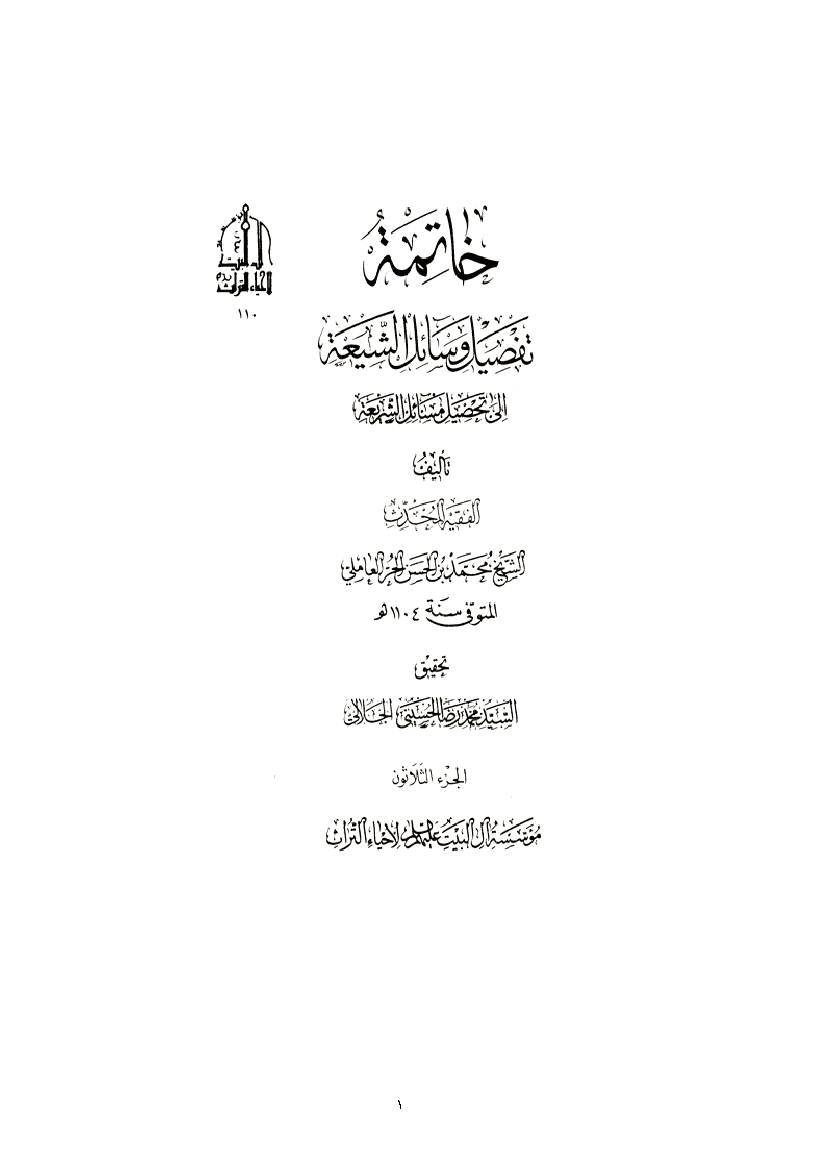 خاتمة
مؤسسة آل البيت لإحياء التراث
١١٠
تفصيل وسائل الشيعة
إلى تحصيل مسائل الشريعة
تأليف
الفقيه المحدث
الشيخ محمد بن الحسن الحر العاملي
المتوفى سنة ١١٠٤ هـ
تحقيق
السيد محمد رضا الحسيني الجلالي
الجزء الثلاثون
مؤسسة آل البيت عليهم السلام لإحياء التراث
١